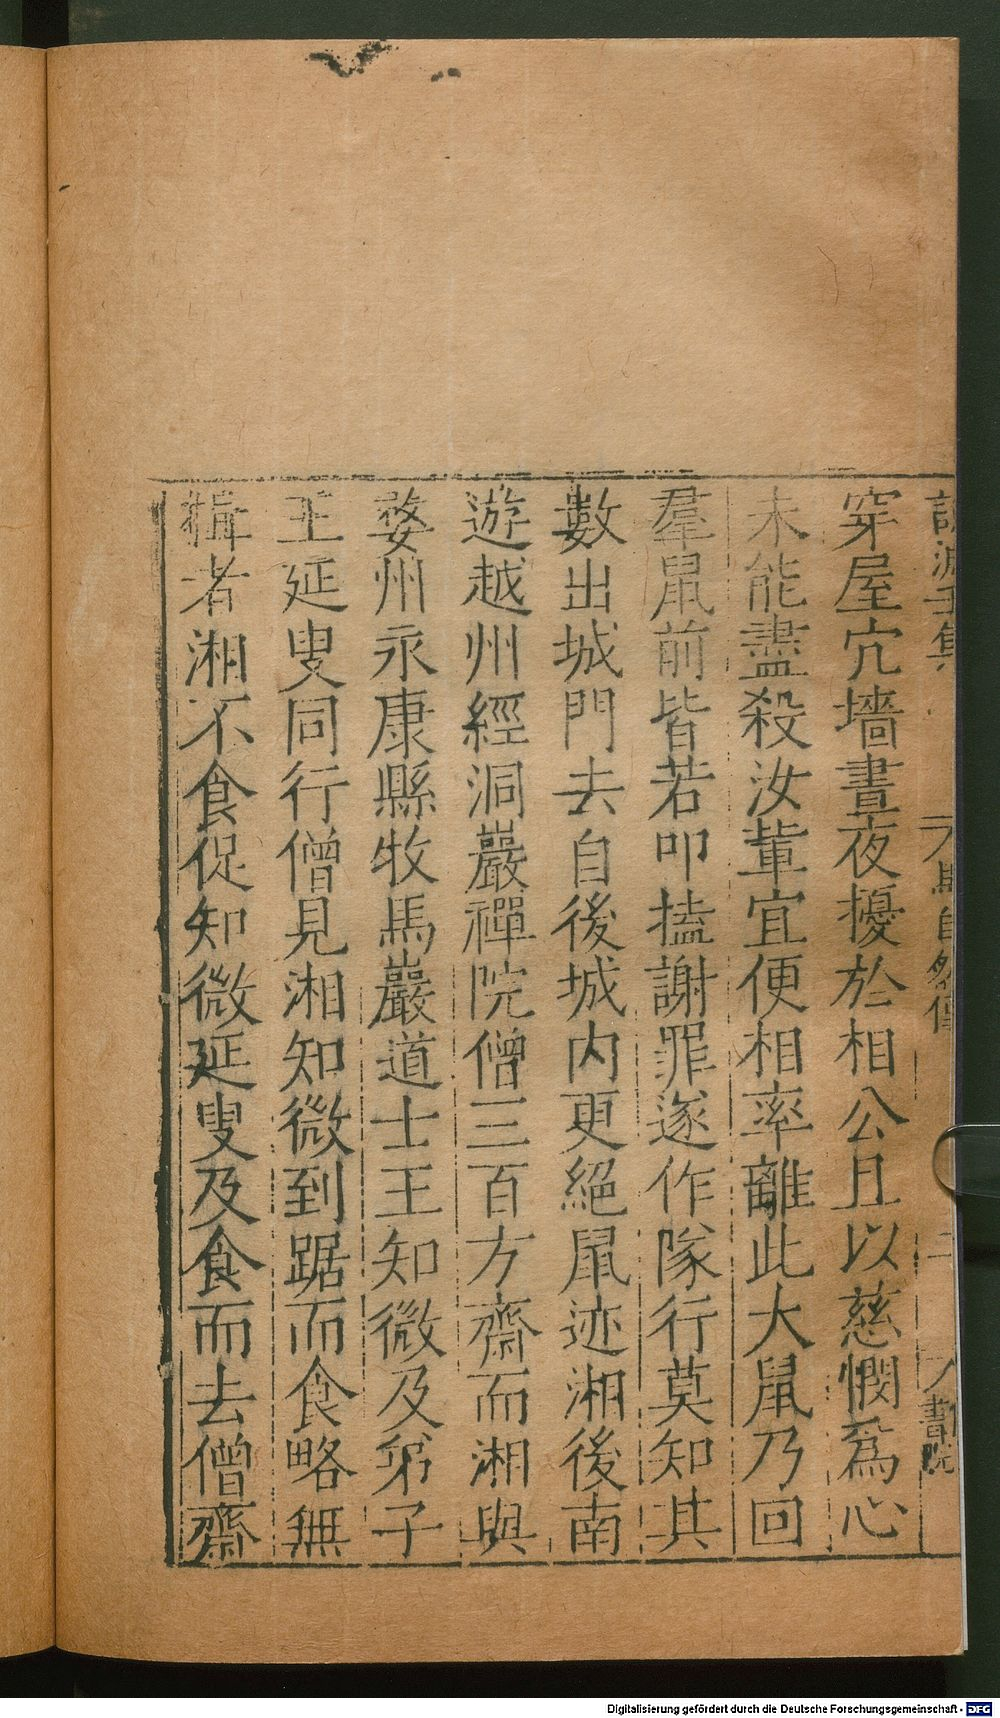 穿屋穴墻晝夜擾於相公且以慈憫爲心
未能盡殺汝軰宜便相率離此大鼠乃回
羣鼠前皆若叩搕謝罪遂作隊行莫知其
數出城門去自後城内更絕鼠迹湘後南
遊越州經洞巖禪院僧三百方齋而湘與
婺州永康縣牧馬巖道士王知微及弟子
王延叟同行僧見湘知微到踞而食略無
揖者湘不食促知微延叟及食而去僧齋
集
馬自然傳
二
書院
Digitalisierung gefördert durch die Deutsche Forschungsgemeinschaft - DFG